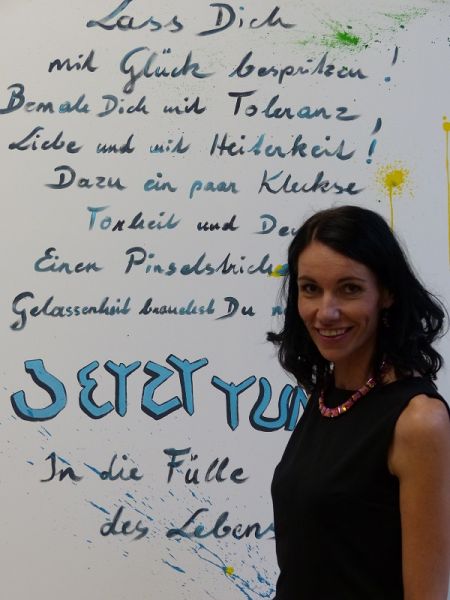 Lass Dich
mit Glück bespritzen!
Bemale Dich mit Toleranz,
Liebe und mit Heiterkeit!
Dazu ein paar Kleckse
Torheit und
Einen Pinselstrich
Gelassenheit brauchst Du
JETZT TUN
In die Fülle
des Lebens